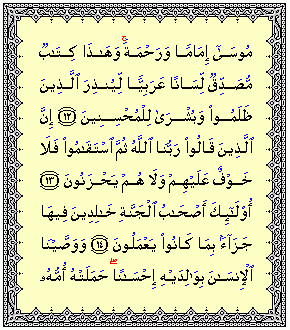 مُوسَىٰٓ إِمَامًا وَرَحْمَةً ۚ وَهَـٰذَا كِتَـٰبٌ
مُّصَدِّقٌ لِّسَانًا عَرَبِيًّا لِّيُنذِرَ ٱلَّذِينَ
ظَلَمُوا۟ وَبُشْرَىٰ لِلْمُحْسِنِينَ ﴿١٢﴾ إِنَّ
ٱلَّذِينَ قَالُوا۟ رَبُّنَا ٱللَّهُ ثُمَّ ٱسْتَقَـٰمُوا۟ فَلَا
خَوْفٌ عَلَيْهِمْ وَلَا هُمْ يَحْزَنُونَ ﴿١٣﴾
أُو۟لَـٰٓئِكَ أَصْحَـٰبُ ٱلْجَنَّةِ خَـٰلِدِينَ فِيهَا
جَزَآءًۢ بِمَا كَانُوا۟ يَعْمَلُونَ ﴿١٤﴾ وَوَصَّيْنَا
ٱلْإِنسَـٰنَ بِوَٰلِدَيْهِ إِحْسَـٰنًا ۖ حَمَلَتْهُ أُمُّهُۥ